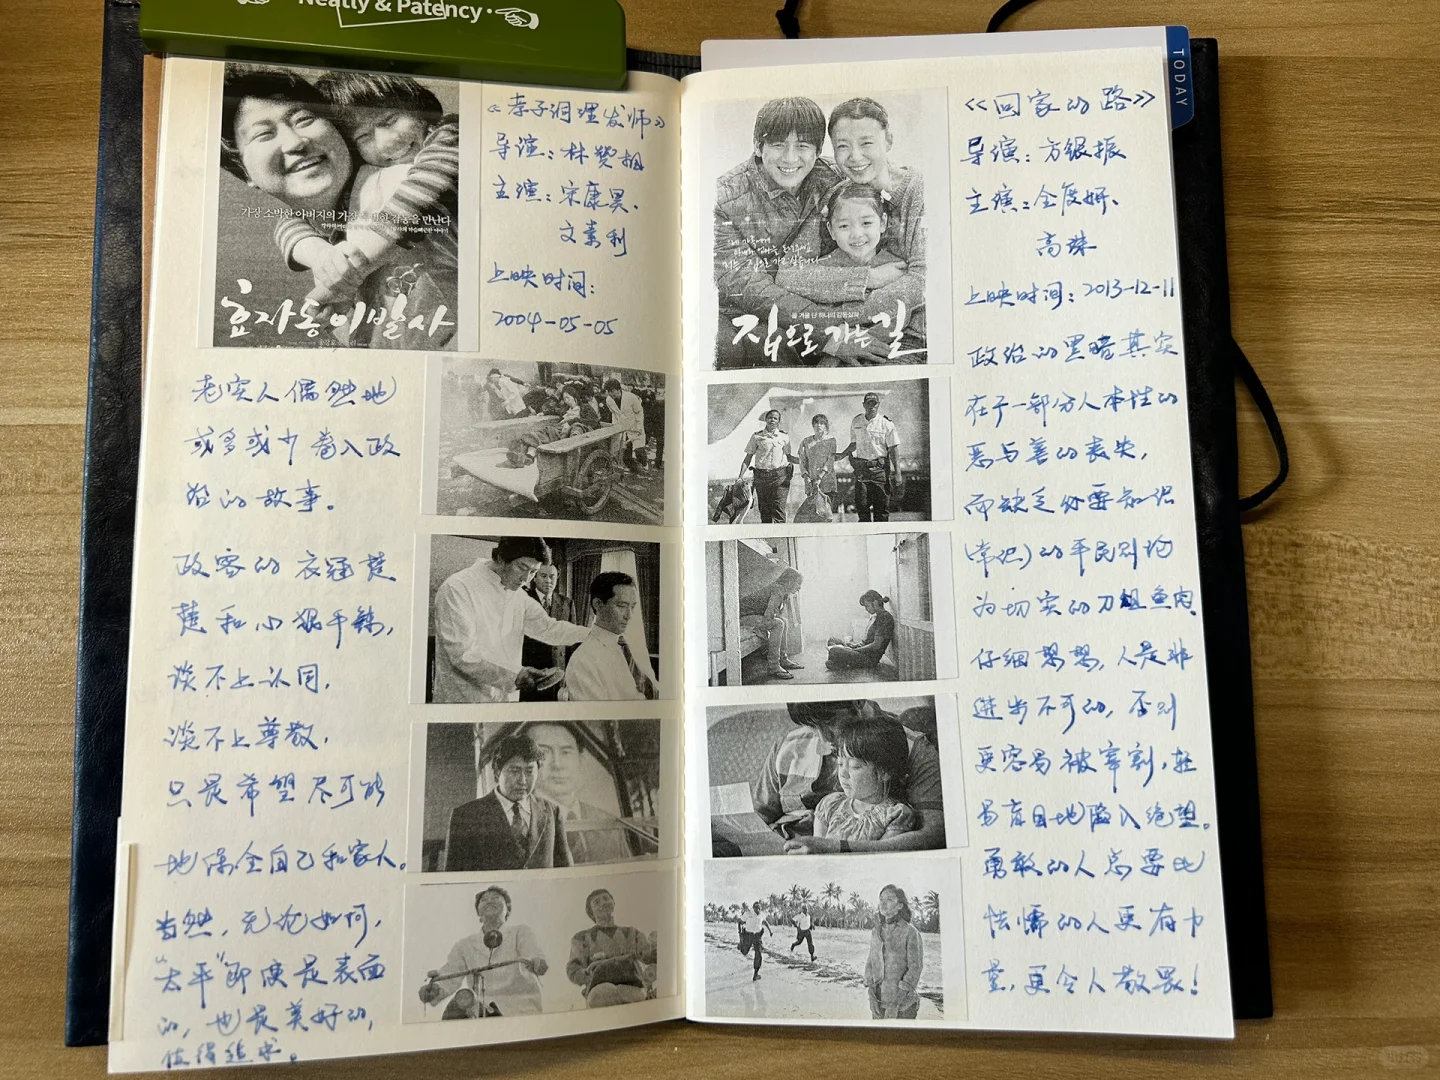 Neatly & Patency
TODAY
가장 소박한 아버지의 가장 한 감동을 만난다
효자동 이발사
《孝子洞理发师》
导演：林赞相
主演：宋康昊、
文素利
上映时间：
2004-05-05
老实人偶然地
或多或少卷入政
治的故事。
政客的衣冠楚
楚和心狠手辣，
谈不上认同，
谈不上尊敬，
只是希望尽可能
地保全自己和家人。
当然，无论如何，
“太平”即使是表面
的，也是美好的，
值得追求。
집으로 가는 길
《回家的路》
导演：方银振
主演：全度妍、
高珠
上映时间：2013-12-11
政治的黑暗其实
在于一部分人本性的
恶与善的丧失，
而缺乏必要知识
（常识）的平民则沦
为切实的刀俎鱼肉。
仔细想想，人是非
进步不可的，否则
更容易被宰割，轻
易盲目地陷入绝望。
勇敢的人总要比
怯懦的人更有力
量，更令人敬畏！